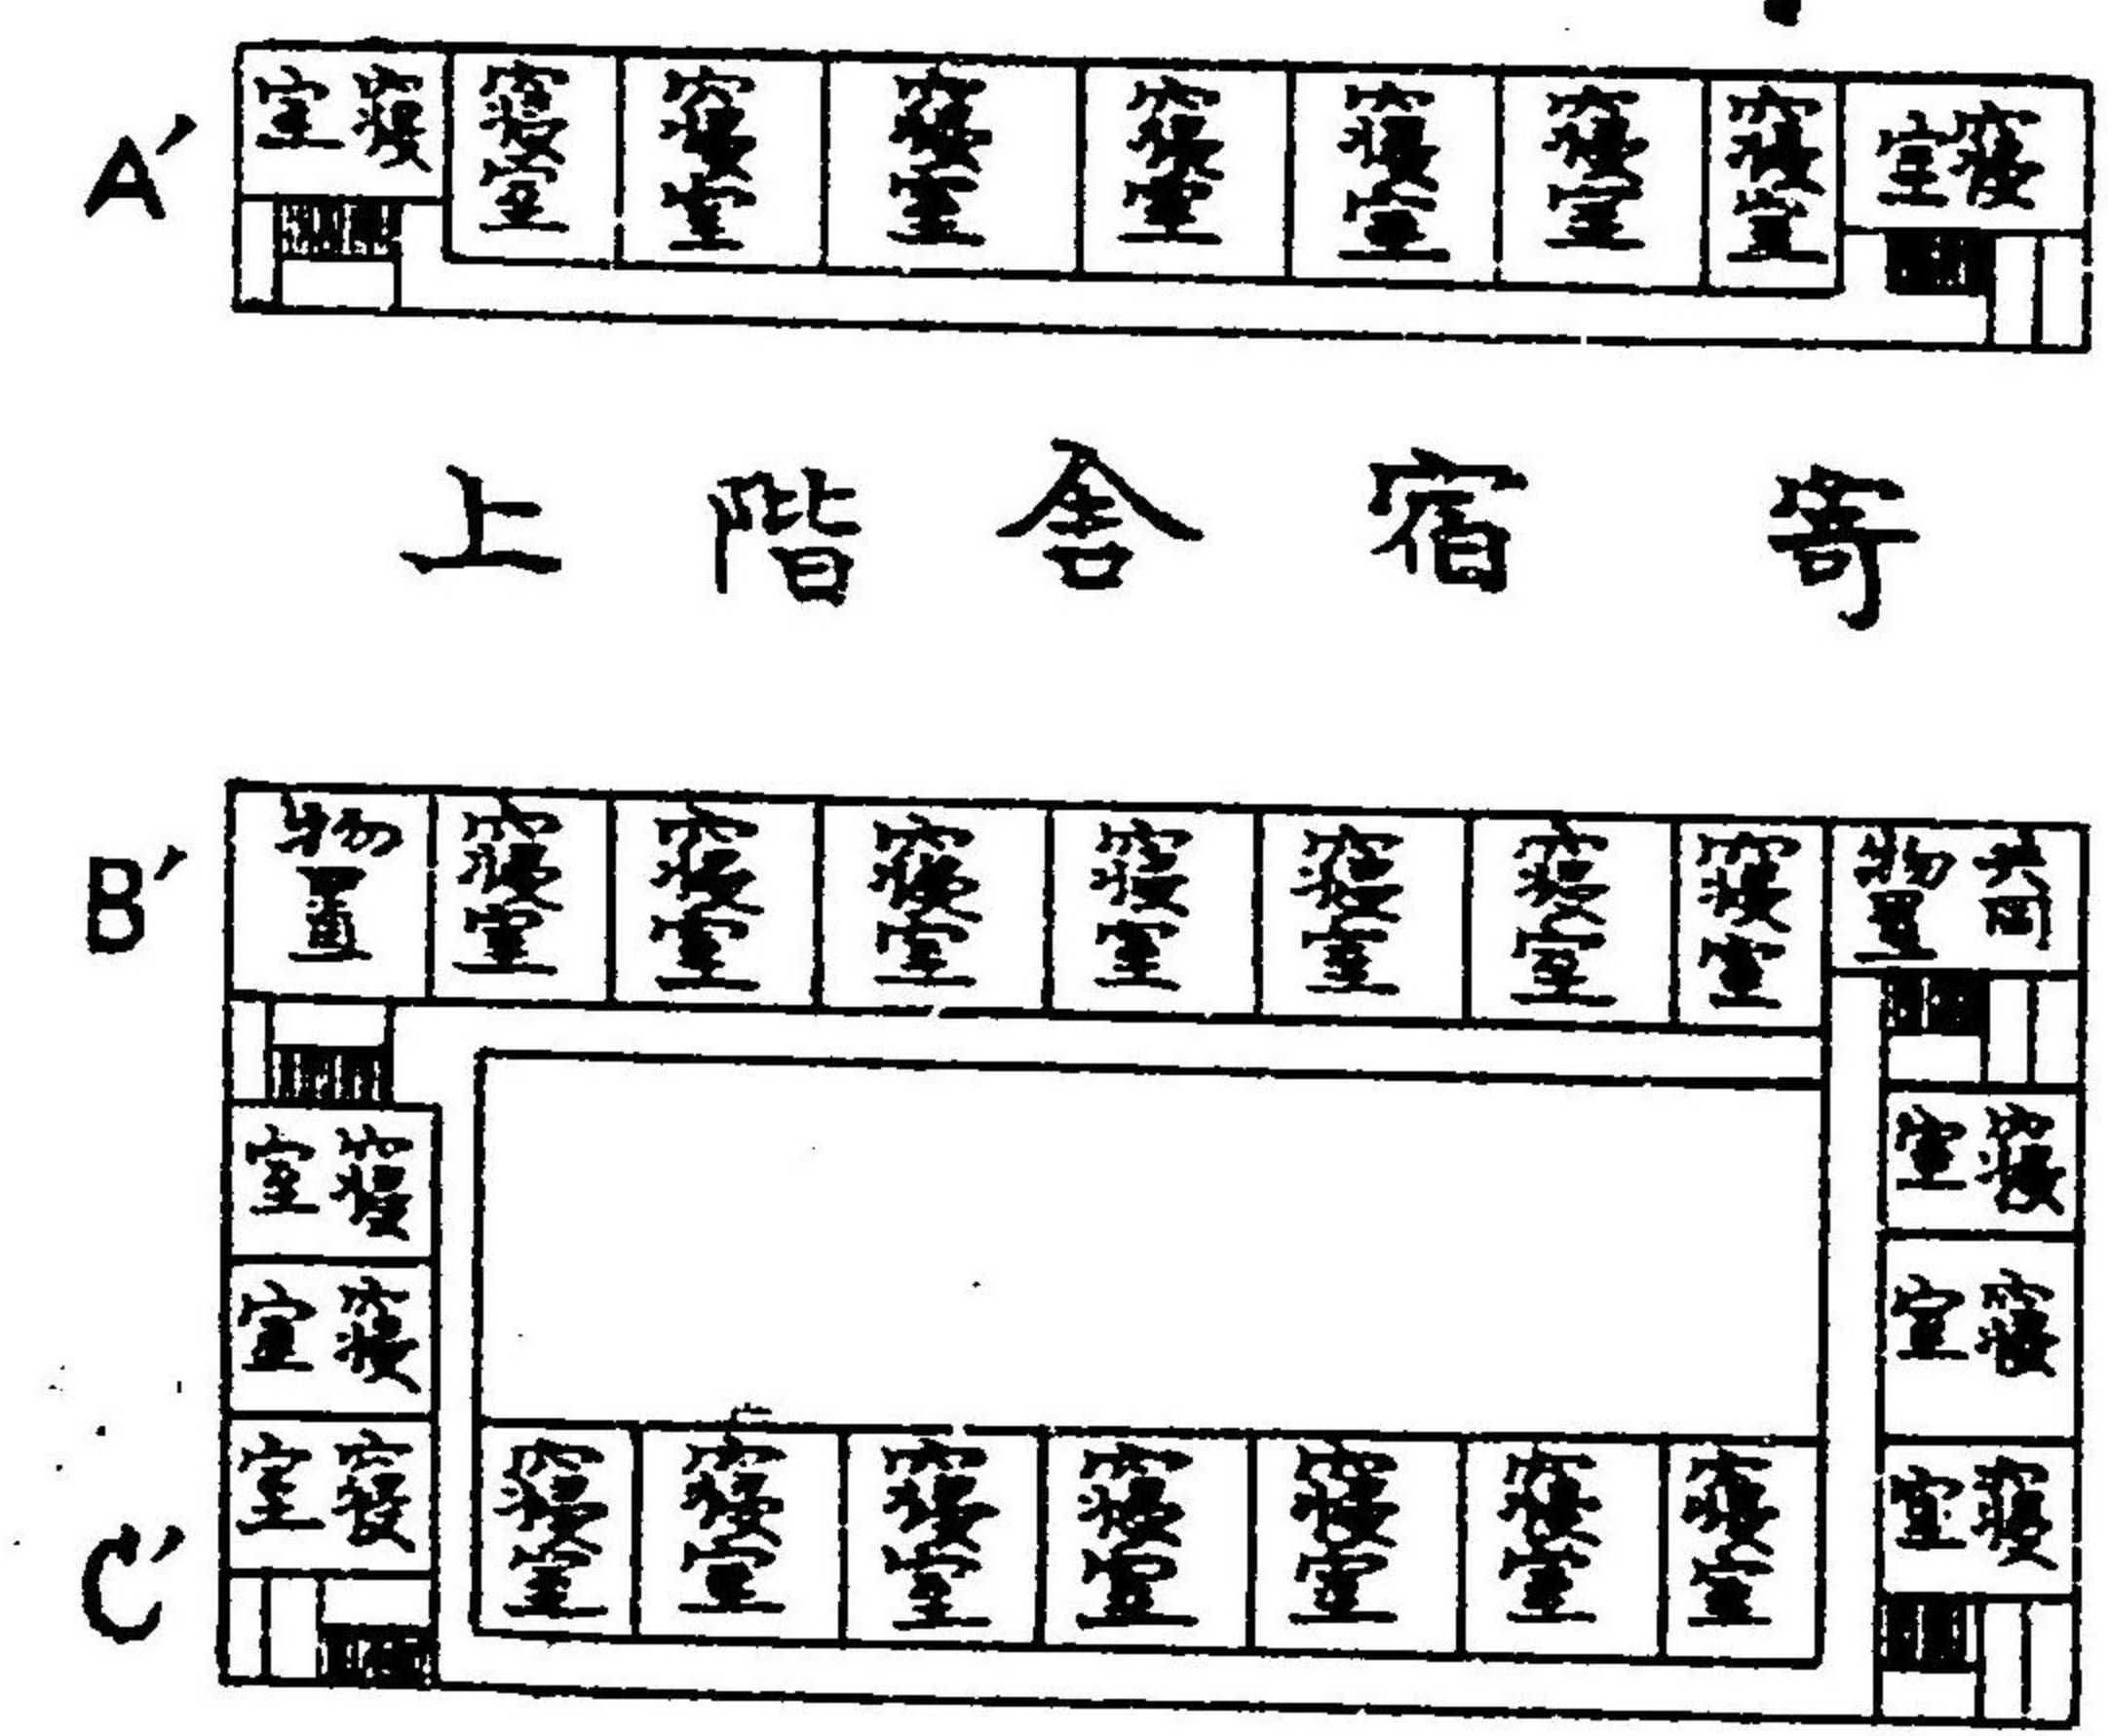 A′
寢室
寢室
寢室
寢室
寢室
寢室
寢室
寢室
寢室
寄宿舍階上
B′
共同物置
寢室
寢室
寢室
寢室
寢室
寢室
寢室
物置
寢室
寢室
寢室
寢室
寢室
寢室
C′
寢室
寢室
寢室
寢室
寢室
寢室
寢室